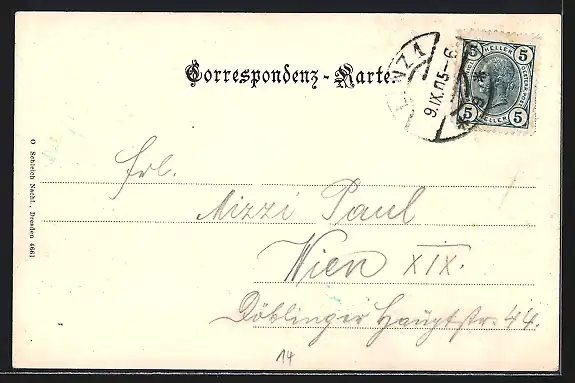 Correspondenz-Karte
LINZ 1
9.IX.05-6
5 HELLER 5
5 HELLER 5
Frl.
Mizzi Paul
Wien XIX.
Döblinger Hauptstr. 44.
O Schleich Nachf., Dresden 4661
14